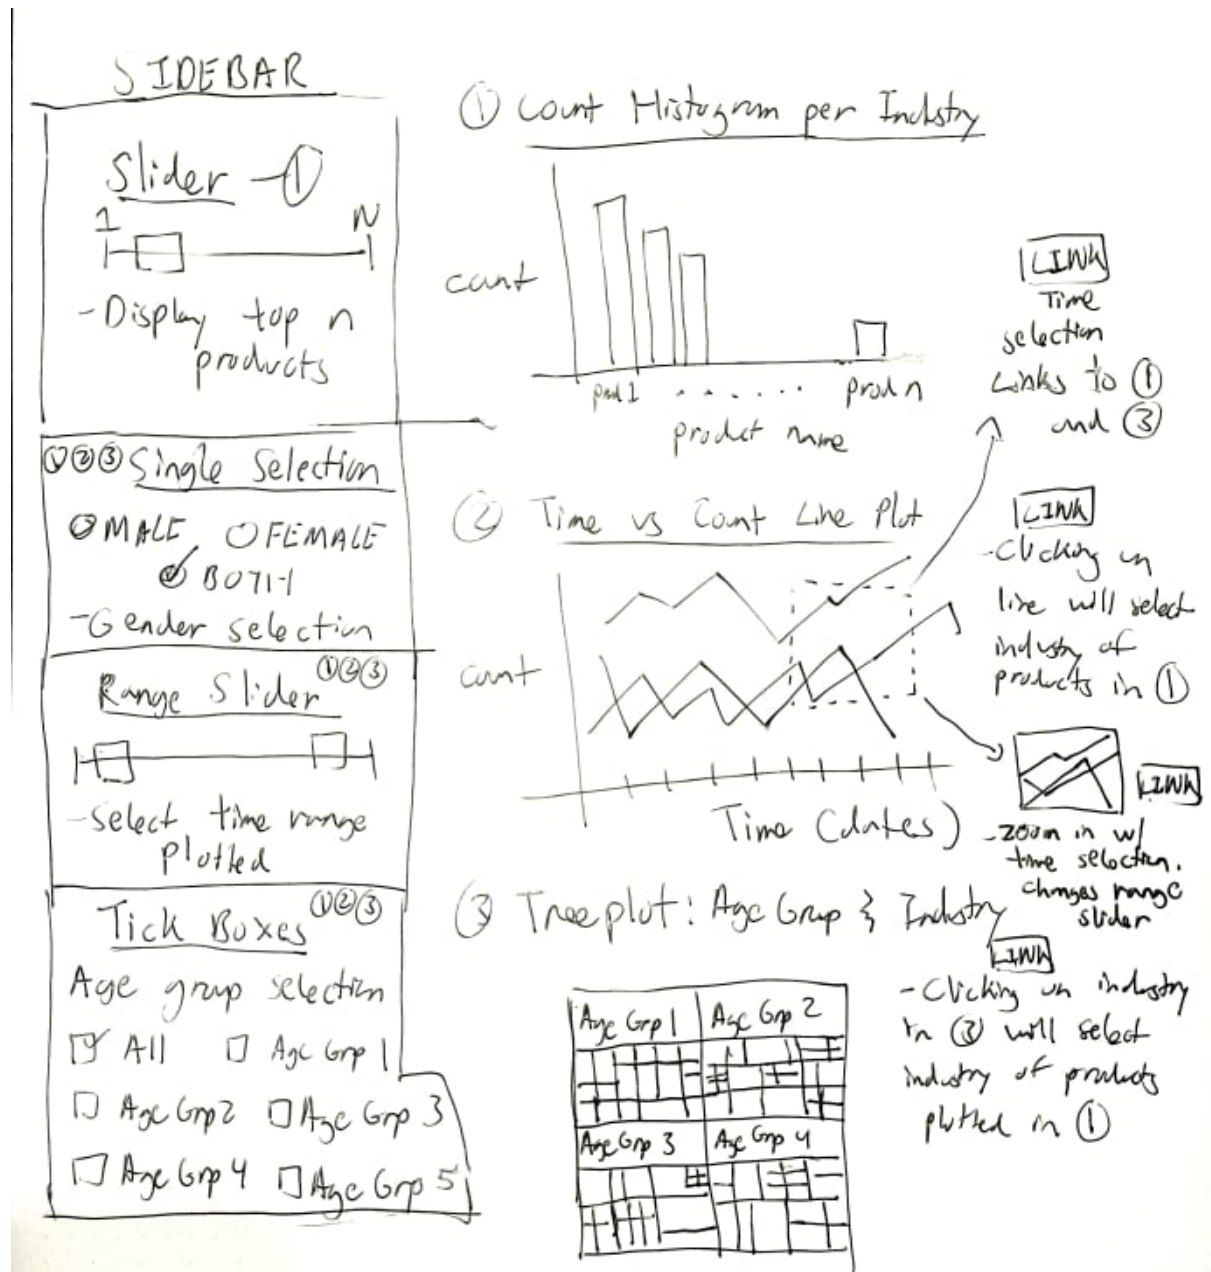 SIDEBAR
Slider - ①
1 N
- Display top n
products
①②③ Single Selection
MALE FEMALE
BOTH
- Gender selection
Range Slider ①②③
- Select time range
plotted
Tick Boxes ①②③
Age group selection
All Age Grp 1
Age Grp 2 Age Grp 3
Age Grp 4 Age Grp 5
① Count Histogram per Industry
count
prod 1 . . . . . . prod n
product name
② Time vs Count Line Plot
count
Time (dates)
③ Treeplot: Age Group & Industry
Age Grp 1 Age Grp 2
Age Grp 3 Age Grp 4
LINK
Time
selection
Links to ①
and ③
LINK
- Clicking on
line will select
industry of
products in ①
LINK
- zoom in w/
time selection.
changes range
slider
LINK
- Clicking on industry
in ③ will select
industry of products
plotted in ①